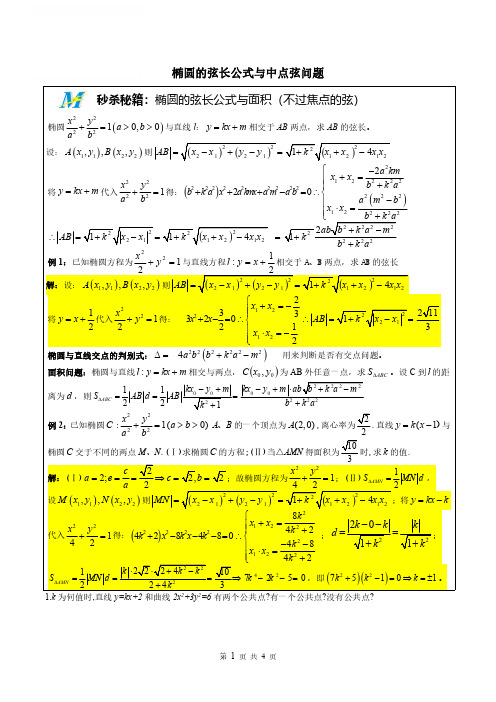 椭圆的弦长公式与中点弦问题
秒杀秘籍：椭圆的弦长公式与面积（不过焦点的弦）
椭圆 x²/a² + y²/b² = 1(a > 0, b > 0) 与直线 l：y = kx + m 相交于 AB 两点，求 AB 的弦长。
设：A(x₁, y₁), B(x₂, y₂) 则 |AB| = √((x₂ − x₁)² + (y₂ − y₁)²) = √(1 + k²) √((x₁ + x₂)² − 4x₁x₂)
将 y = kx + m 代入 x²/a² + y²/b² = 1 得：(b² + k²a²)x² + 2a²kmx + a²m² − a²b² = 0 ∴ { x₁ + x₂ = −2a²km/(b² + k²a²) ; x₁ · x₂ = a²(m² − b²)/(b² + k²a²)
∴ |AB| = √(1 + k²) |x₂ − x₁| = √(1 + k²) √((x₁ + x₂)² − 4x₁x₂) = √(1 + k²) 2ab√(b² + k²a² − m²)/(b² + k²a²)
例 1：已知椭圆方程为 x²/2 + y² = 1 与直线方程 l : y = x + 1/2 相交于 A、B 两点，求 AB 的弦长
解：设：A(x₁, y₁), B(x₂, y₂) 则 |AB| = √((x₂ − x₁)² + (y₂ − y₁)²) = √(1 + k²) √((x₁ + x₂)² − 4x₁x₂)
将 y = x + 1/2 代入 x²/2 + y² = 1 得：3/2 x² + 2x − 3/2 = 0 ∴ { x₁ + x₂ = −2/3 ; x₁ · x₂ = −1/2 ∴ |AB| = √(1 + k²) |x₂ − x₁| = 2√11/3
椭圆与直线交点的判别式：Δ = 4a²b²(b² + k²a² − m²) 用来判断是否有交点问题。
面积问题：椭圆与直线 l : y = kx + m 相交与两点，C(x₀, y₀) 为 AB 外任意一点，求 S△ABC。设 C 到 l 的距
离为 d，则 S△ABC = 1/2 |AB| d = 1/2 |AB| |kx₀ − y₀ + m|/√(k² + 1) = |kx₀ − y₀ + m| · ab√(b² + k²a² − m²)/(b² + k²a²)
例 2：已知椭圆 C : x²/a² + y²/b² = 1(a > b > 0) A、B 的一个顶点为 A(2,0), 离心率为 √2/2. 直线 y = k(x − 1) 与
椭圆 C 交于不同的两点 M、N. (Ⅰ)求椭圆 C 的方程; (Ⅱ)当△AMN 得面积为 √10/3 时, 求 k 的值.
解：(Ⅰ) a = 2; e = c/a = √2/2 ⇒ c = √2, b = √2；故椭圆方程为 x²/4 + y²/2 = 1；(Ⅱ) S△AMN = 1/2 |MN| d，
设 M(x₁, y₁), N(x₂, y₂) 则 |MN| = √((x₂ − x₁)² + (y₂ − y₁)²) = √(1 + k²) √((x₁ + x₂)² − 4x₁x₂)；将 y = kx − k
代入 x²/4 + y²/2 = 1 得：(4k² + 2)x² − 8k²x − 4k² − 8 = 0 ∴ { x₁ + x₂ = 8k²/(4k² + 2) ; x₁ · x₂ = −4k² − 8/(4k² + 2) ；d = |2k − 0 − k|/√(1 + k²) = |k|/√(1 + k²)；
S△AMN = 1/2 |MN| d = |k| · 2√2 √(2 + 4k² − k²)/(2 + 4k²) = √10/3 ⇒ 7k⁴ − 2k² − 5 = 0，即 (7k² + 5)(k² − 1) = 0 ⇒ k = ±1。
1.k 为何值时,直线 y=kx+2 和曲线 2x²+3y²=6 有两个公共点?有一个公共点?没有公共点?
第 1 页 共 4 页